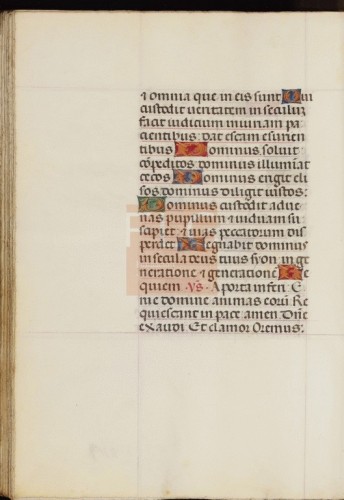 & omnia que in eis sunt Qui
custodit ueritatem in seculũ
facit iudicium iniuriam pa
cientibus: dat escam esurien
tibus Dominus soluit
cõpeditos dominus illuminat
cecos Dominus erigit eli
sos dominus diligit iustos:
Dominus custodit adue
nas pupillum & uiduam su
scipiet & uias peccatorum dis
perdet Regnabit dominus
in secula deus tuus syon in ge
neratione & generationẽ Re
quiem ·Vs· A porta inferi E
rue domine animas eorũ Re
quiescant in pace amen Dñe
exaudi Et clamor Oremus: